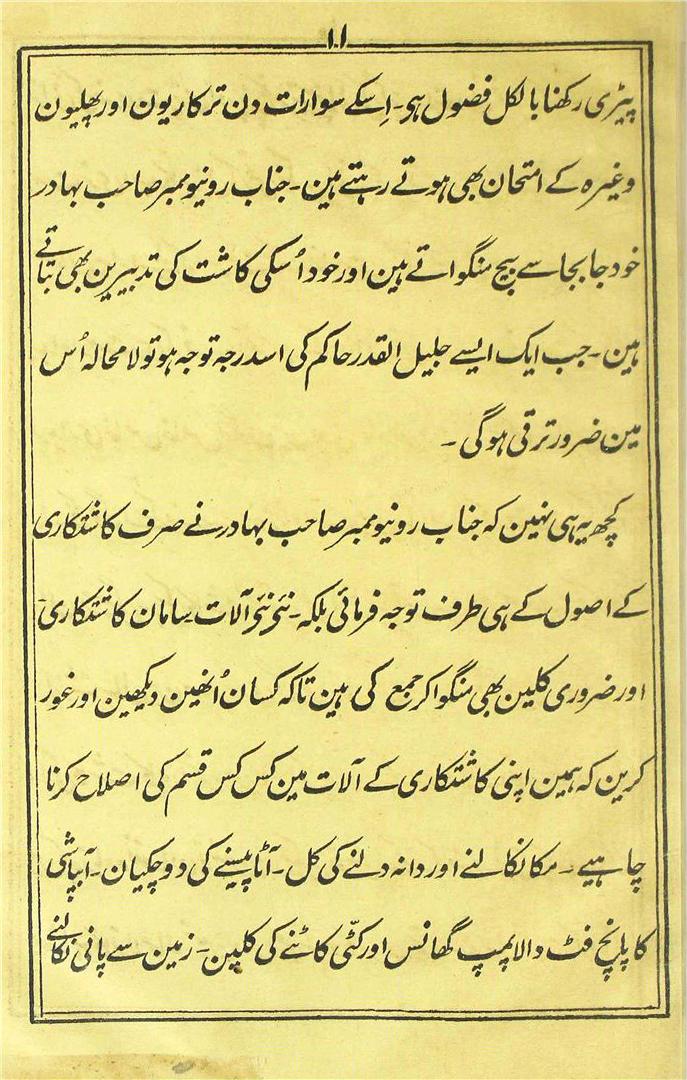 ۱۱
پیڑی رکھنا بالکل فضول ہی۔ اِسکے سوا رات دن ترکاریون اور پھلیون
وغیرہ کے امتحان بھی ہوتے رہتے ہین۔ جناب رونیو ممبر صاحب بہادر
خود جا بجا سے بیج منگواتے ہین اور خود اُسکی کاشت کی تدبیرین بھی بتاتے
ہین۔ جب ایک ایسے جلیل القدر حاکم کی اسدرجہ توجہ ہو تو لا محالہ اُس
مین ضرور ترقی ہوگی ۔
کچھ یہ ہی نہین کہ جناب رونیو ممبر صاحب بہادر نے صرف کاشتکاری
کے اصول کے ہی طرف توجہ فرمائی بلکہ۔ نئی نئی آلات سامان کاشتکاری
اور ضروری کلین بھی منگوا کر جمع کی ہین تاکہ کسان اُنھین دیکھین اور غور
کرین کہ ہمین اپنی کاشتکاری کے آلات مین کس کس قسم کی اصلاح کرنا
چاہیے۔ مکا نکالنے اور دانہ دلنے کی کل۔ آٹا پیسنے کی دو چکیان۔ آبپاشی
کا پانچ فٹ والا پمپ گھانس اور کٹّی کاٹنے کی کلین۔ زمین سے پانی نکالنے